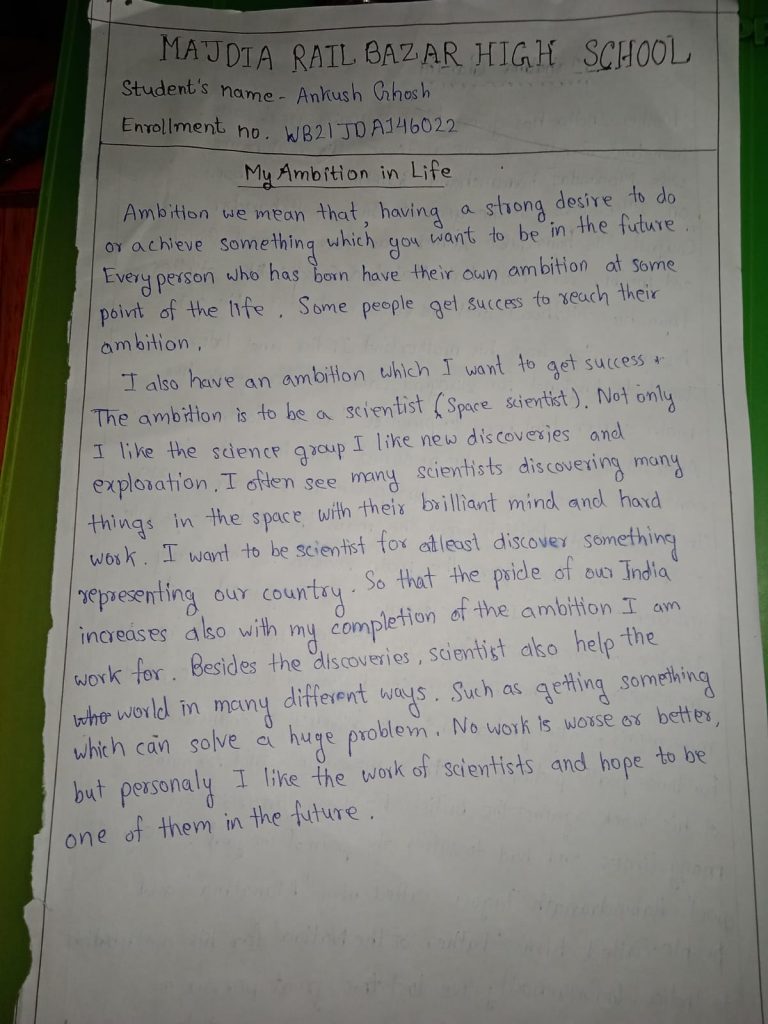 MAJDIA RAIL BAZAR HIGH SCHOOL
Student's name - Ankush Ghosh
Enrollment no. WB21JDA146022
My Ambition in Life
Ambition we mean that, having a strong desire to do
or achieve something which you want to be in the future.
Every person who has born have their own ambition at some
point of the life. Some people get success to reach their
ambition.
I also have an ambition which I want to get success.
The ambition is to be a scientist (Space scientist). Not only
I like the science group I like new discoveries and
exploration. I often see many scientists discovering many
things in the space with their brilliant mind and hard
work. I want to be scientist for atleast discover something
representing our country. So that the pride of our India
increases also with my completion of the ambition I am
work for. Besides the discoveries, scientist also help the
who world in many different ways. Such as getting something
which can solve a huge problem. No work is worse or better,
but personaly I like the work of scientists and hope to be
one of them in the future.